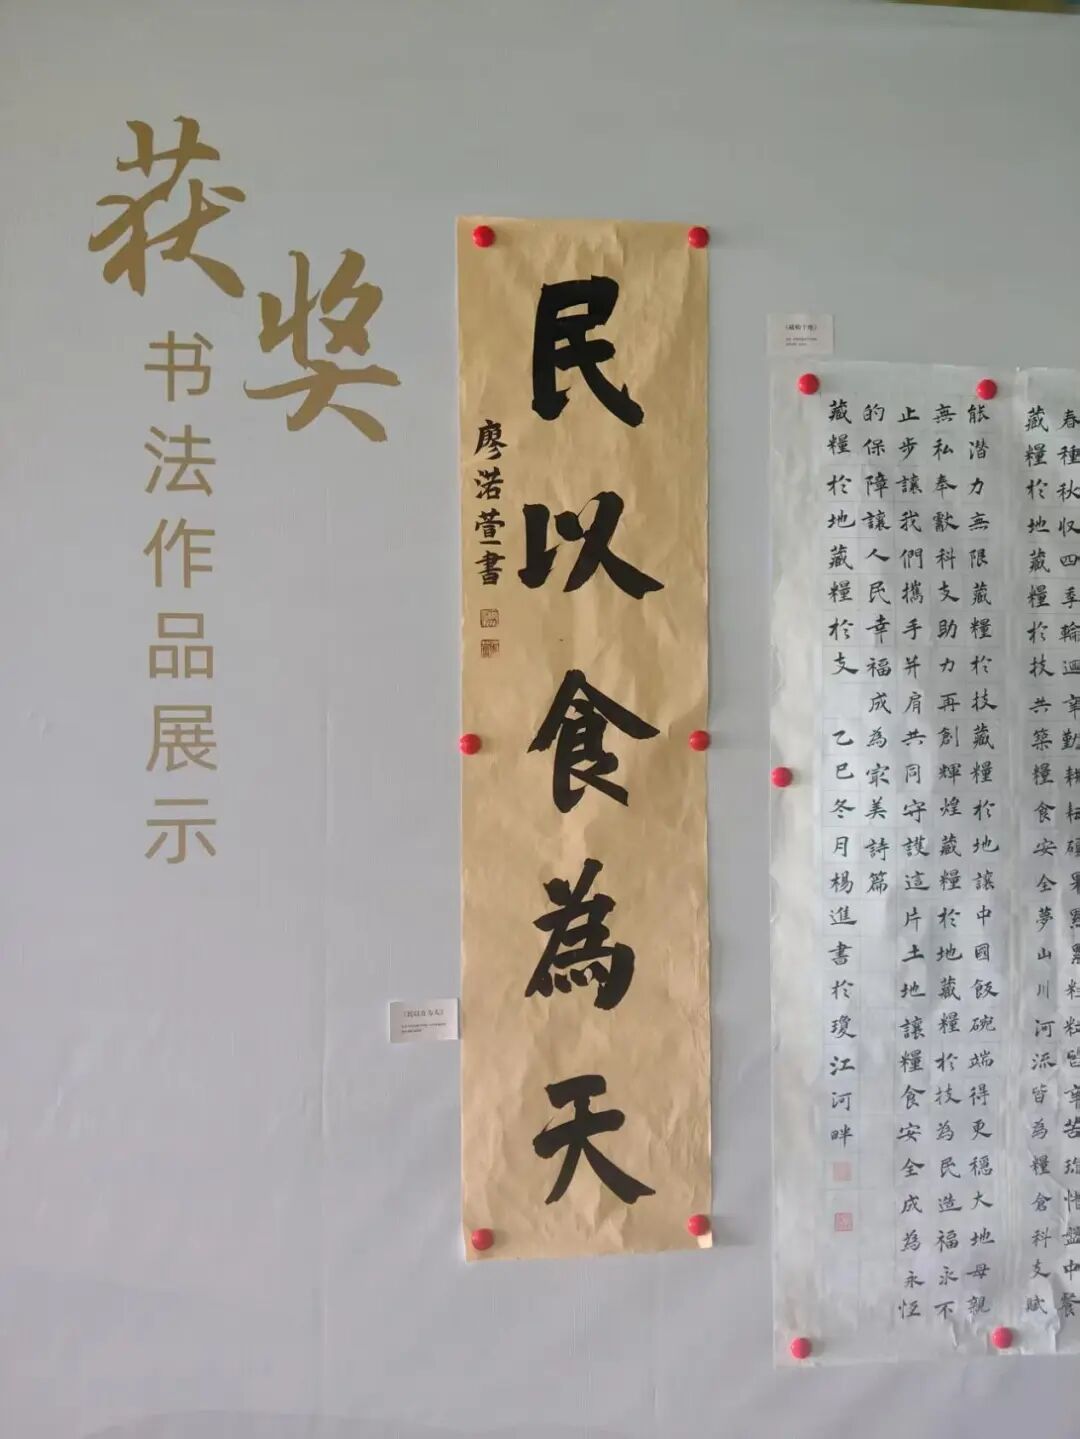 获奖
书法作品展示
民以食為天
廖渃萱書
《民以食为天》
《藏粮于地》
春種秋収四季輪迴辛勤耕耘碩果
藏糧於地藏糧於技共築糧食安全夢山川河流皆為糧倉科支賦
能潜力無限藏糧於技藏糧於地讓中國飯碗端得更穩大地母親
無私奉獻科支助力再創輝煌藏糧於地藏糧於技為民造福永不
止步讓我們攜手并肩共同守護這片土地讓糧食安全成為永恒
的保障讓人民幸福成為最美詩篇
藏糧於地藏糧於支 乙巳冬月楊進書於瓊江河畔